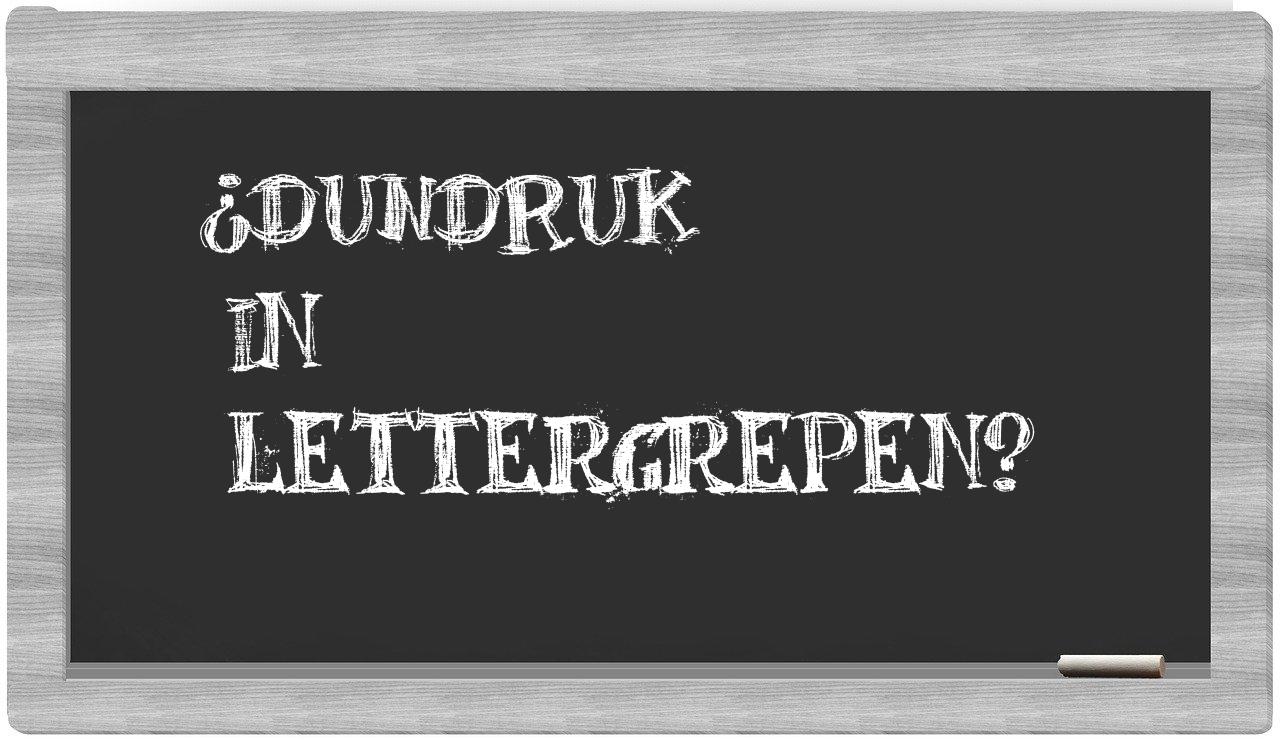 ¿DUNDRUK
IN
LETTERGREPEN?